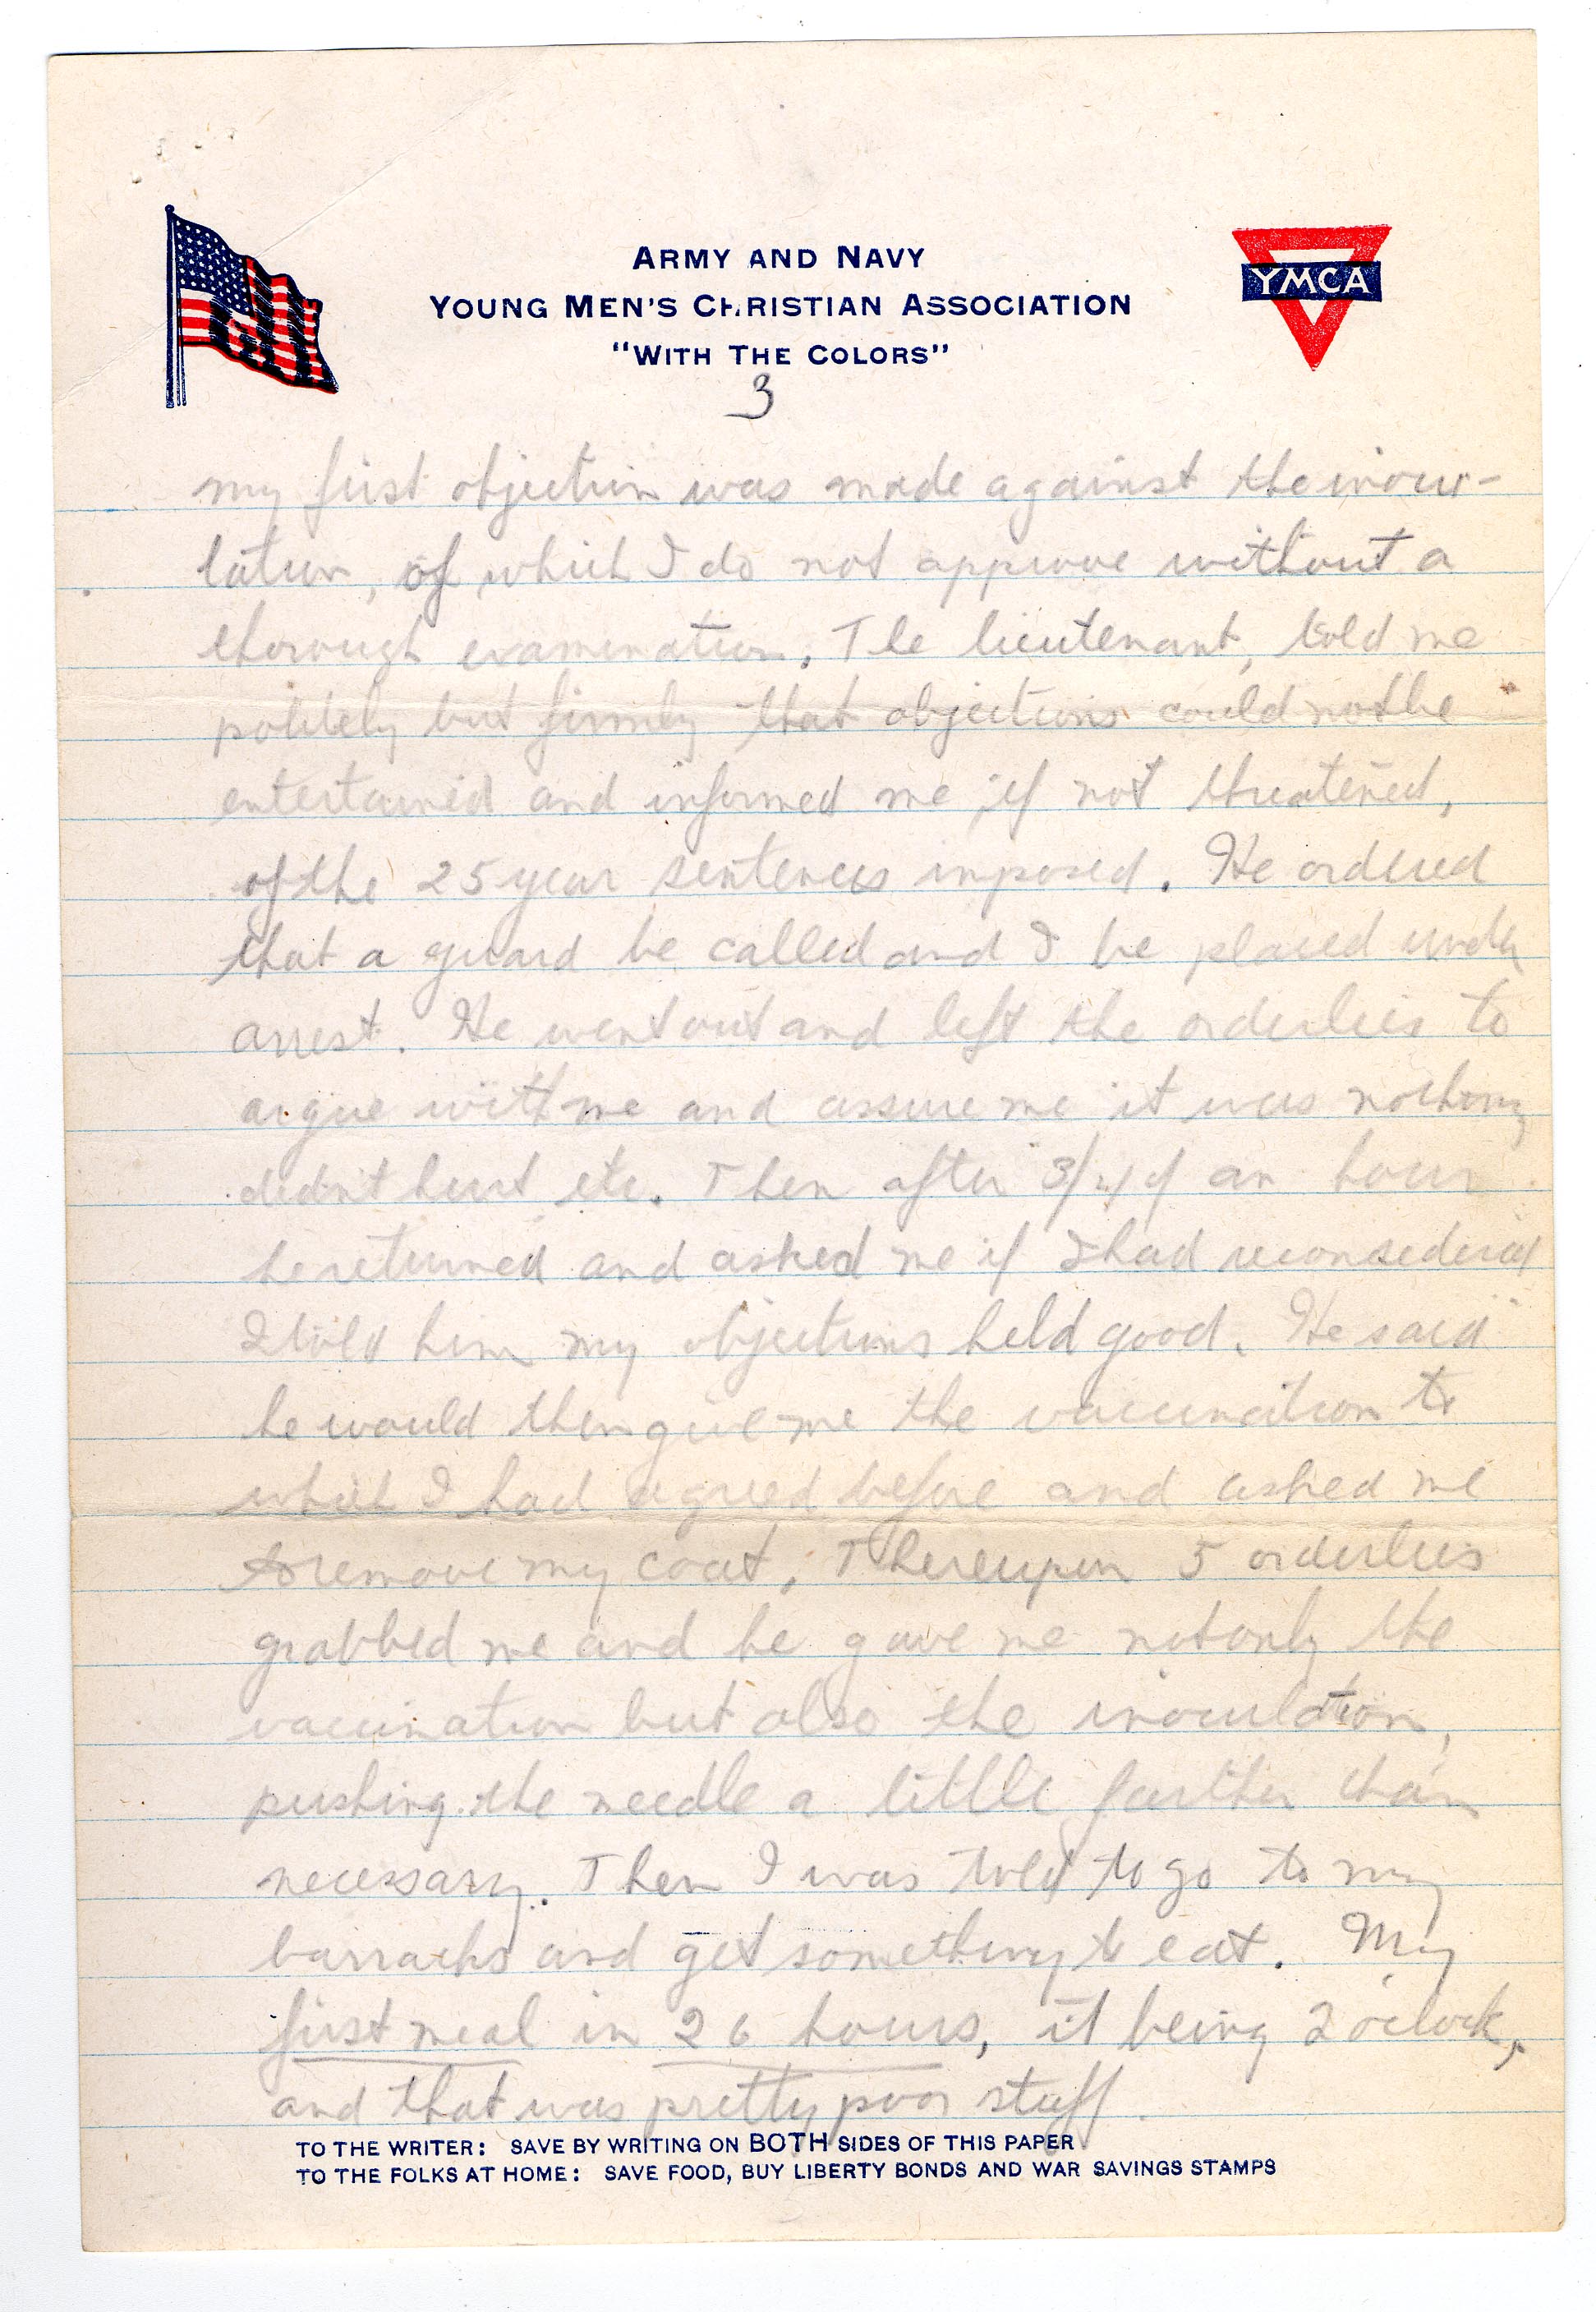 ARMY AND NAVY
YOUNG MEN'S CHRISTIAN ASSOCIATION
"WITH THE COLORS"
YMCA
3
my first objection was made against the inocu-
lation, of which I do not approve without a
thorough examination. The lieutenant, told me
politely but firmly that objections could not be
entertained and informed me, if not threatened,
of the 25 year sentences imposed. He ordered
that a guard be called and I be placed under
arrest. He went out and left the orderlies to
argue with me and assure me it was nothing,
didn't hurt etc. Then after 3/4 of an hour
he returned and asked me if I had reconsidered
I told him my objections held good. He said
he would then give me the vaccination to
which I had agreed before and asked me
to remove my coat. Thereupon 5 orderlies
grabbed me and he gave me not only the
vaccination but also the inoculation,
pushing the needle a little farther than
necessary. Then I was told to go to my
barracks and get something to eat. My
first meal in 26 hours, it being 2 o'clock,
and that was pretty poor stuff.
TO THE WRITER: SAVE BY WRITING ON BOTH SIDES OF THIS PAPER
TO THE FOLKS AT HOME: SAVE FOOD, BUY LIBERTY BONDS AND WAR SAVINGS STAMPS